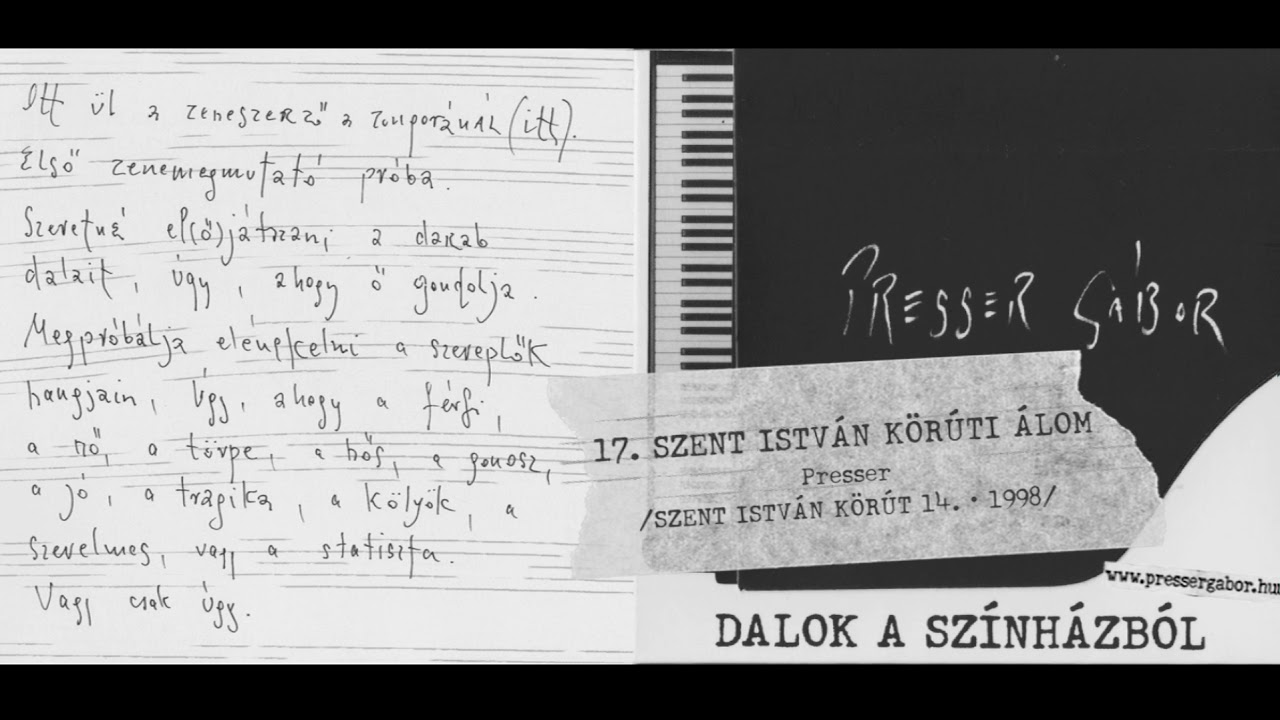 Itt ül a zeneszerző a zongoránál (itt).
Első zenemegmutató próba.
Szeretné el(ő)játszani a darab
dalait, úgy, ahogy ő gondolja.
Megpróbálja elénekelni a szereplők
hangjain, úgy, ahogy a férfi,
a nő, a törpe, a hős, a gonosz,
a jó, a tragika, a kölyök, a
szerelmes, vagy a statiszta.
Vagy csak úgy.
PRESSER GÁBOR
17. SZENT ISTVÁN KÖRÚTI ÁLOM
Presser
/SZENT ISTVÁN KÖRÚT 14. • 1998/
www.pressergabor.hu
DALOK A SZÍNHÁZBÓL